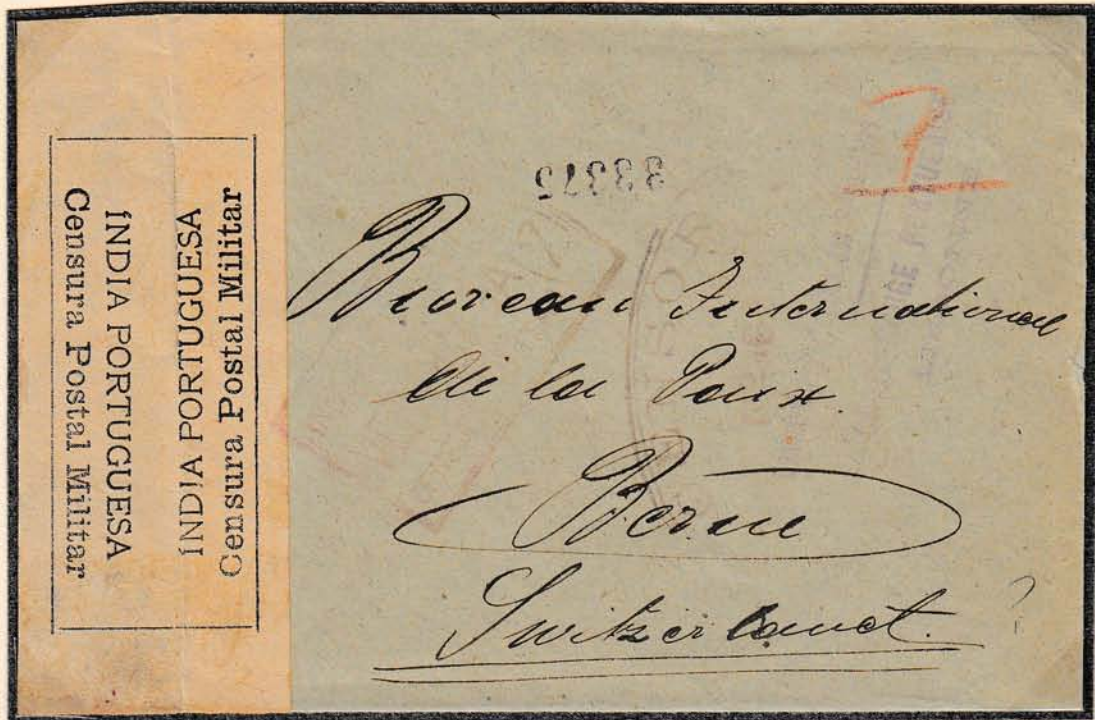 ÍNDIA PORTUGUESA
Censura Postal Militar
ÍNDIA PORTUGUESA
Censura Postal Militar
33375
1
Bureau International
de la Paix.
Berne
Switzerland.